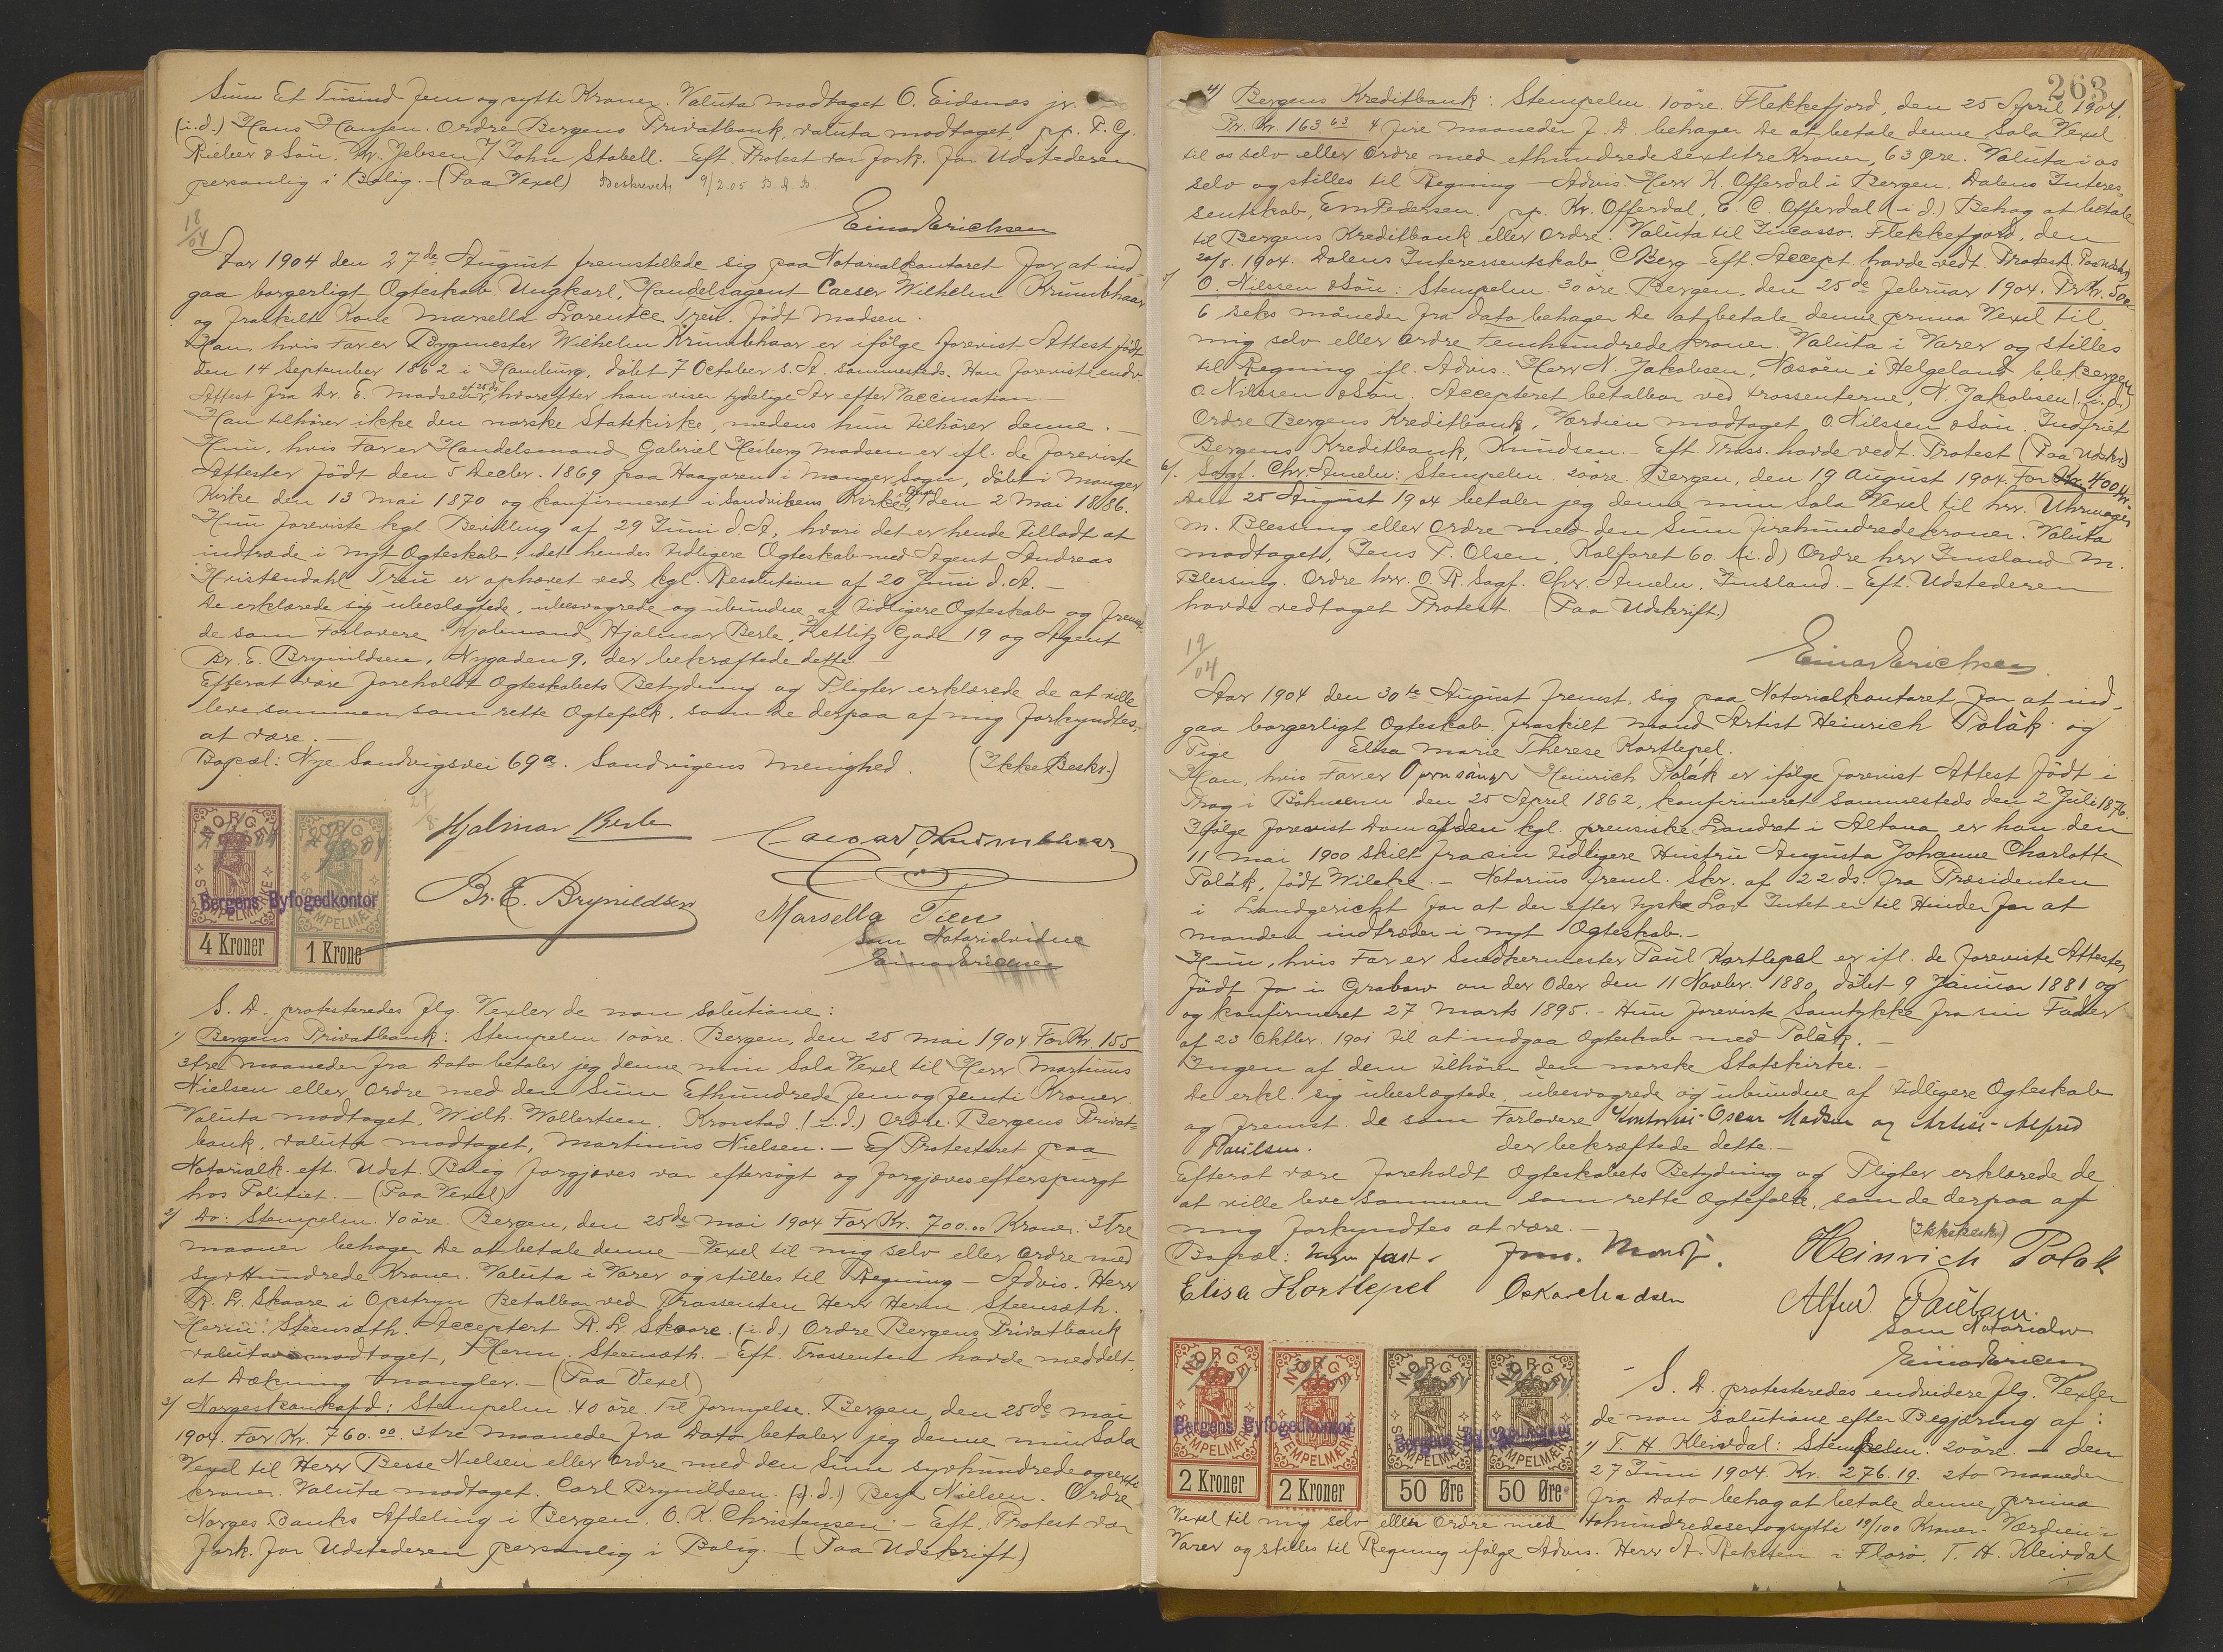 Sum Et Tusind fem og sytti Kroner. Valuta modtaget O. Eidsnæs jr.
(i.d.) Hans Hansen. Ordre Bergens Privatbank, valuta modtaget, pp. F. G.
Rieber & Søn. Kr. Jebsen / John Stabell. Eft. Protest var fork. for Udstederen
personlig i Bolig. - (Paa Vexel) Beskrevet 9/2.05
Einar Erichsen
18/04
Aar 1904 den 27de August fremstillede sig paa Notarialkontoret for at ind-
gaa borgerligt Ægteskab Ungkarl, Handelsagent Caesar Wilhelm Krumbhaar
og fraskilt Kone Marsella Laurentze Treu født Madsen.
Han, hvis Far er Bygmester Wilhelm Krumbhaar er ifølge forevist Attest født
den 14 September 1862 i Hamburg, døbt 7 October s. A. sammesteds. Han foreviste endv.
Attest fra Dr. E. Madsen af 25 ds., hvorefter han viser tydelige Ar efter Vaccination. -
Han tilhører ikke den norske Statskirke, medens hun tilhører denne. -
Hun, hvis Far er Handelsmand Gabriel Heiberg Madsen er ifl. de foreviste
Attester født den 5 Decbr. 1869 paa Haagaren i Manger Sogn, døbt i Manger
Kirke den 13 Mai 1870 og konfirmeret i Sandvikens Kirke den 2 Mai 1886.
Hun foreviste kgl. Bevilling af 29 Juni d. A., hvori det er hende tilladt at
indtræde i nyt Ægteskab, idet hendes tidligere Ægteskab med Agent Andreas
Kristendahl Treu er ophævet ved kgl. Resolution af 20 Juni d. A. -
De erklærede sig ubeslægtede, ubesvogrede og ubundne af tidligere Ægteskab og fremst.
de som Forlovere Kjøbmand Hjalmar Berle, Keblitz Gade 19 og Agent
Br. E. Brynildsen, Nygaden 9, der bekræftede dette. -
Efterat være foreholdt Ægteskabets Betydning og Pligter erklærede de at ville
leve sammen som rette Ægtefolk, som de derpaa af mig forkyndtes
at være. -
Bopæl: Nye Sandvigsvei 69a. Sandvigens Menighed. (Ikke Beskr.)
NORGE
STEMPELMÆRKE
4 Kroner
NORGE
STEMPELMÆRKE
1 Krone
Bergens Byfogedkontor
27/8
Hjalmar Berle
Caesar Krumbhaar
Br. E. Brynildsen
Marsella Treu
Som Notarialvidne
Einar Erichsen
S. D. protesteredes flg. Vexler de non solutione:
1) Bergens Privatbank: Stempelm. 10 øre. Bergen, den 25 Mai 1904 For Kr. 155
3 tre Maaneder fra Dato betaler jeg denne min Sola Vexel til Herr Martinus
Nielsen eller Ordre med den Sum Ethundrede fem og femti Kroner.
Valuta modtaget, Wilh. Wollertsen. Kronstad. (i.d.) Ordre Bergens Privat-
bank, valuta modtaget, Martinus Nielsen. - Ef. Protesteret paa
Notarialk. eft. Udst. Bolig forgjæves var eftersøgt og forgjæves efterspurgt
hos Politiet. - (Paa Vexel)
2) Do: Stempelm. 40 øre. Bergen, den 25de Mai 1904 For Kr. 700.00 Kroner. 3 Tre
maaner behager De at betale denne Vexel til mig selv eller Ordre med
Syvhundrede Kroner. Valuta i Varer og stilles til Regning - Advis. Herr
R. L. Skaare i Opstryn Betalbar ved Trassenten Herr Herm. Steensæth.
Herm. Steensæth. Acceptert R. L. Skaare. (i.d.) Ordre Bergens Privatbank
valuta modtaget, Herm. Steensæth. - Eft. Trassenten havde meddelt,
at Dækning mangler. - (Paa Vexel)
3) Norgesbankafd: Stempelm 40 øre. Til fornyelse. Bergen, den 25de Mai
1904. For Kr. 760.00. 3 tre Maanede fra Dato betaler jeg denne min Sola
Vexel til Herr Besse Nielsen eller Ordre med den Sum syvhundrede og sexti
kroner. Valuta modtaget. Carl Brynildsen. (i.d.) Besse Nielsen. Ordre
Norges Banks Afdeling i Bergen. O. K. Christensen. - Eft. Protest var
fork. for Udstederen personlig i Bolig. - (Paa Udskrift)
263
4) Bergens Kreditbank: Stempelm. 10 øre. Flekkefjord, den 25 April 1904.
Pr. Kr. 163 63 4 fire Maaneder f. D. behager De at betale denne Sola Vexel
til os selv eller Ordre med ethundredesextitre Kroner, 63 Øre. Valuta i os
selv og stilles til Regning - Advis. Herr K. Offerdal i Bergen. Dalens Interes-
sentskab, Em Pedersen. pp. Kr. Offerdal, E. C. Offerdal (i.d.) Behag at betale
til Bergens Kreditbank eller Ordre. Valuta til Incasso. Flekkefjord, den
20/8. 1904. Dalens Interessentskab C Berg - Eft. Accept. havde vedt. Protest. Paa Udskr.
5) O. Nilssen & Søn: Stempelm. 30 øre Bergen, den 25de Februar 1904. Pr Kr. 500.
6 seks måneder fra dato behager De at betale denne prima Vexel til
mig selv eller Ordre Femhundrede kroner. Valuta i Varer og stilles
til Regning ifl. Advis. Herr N. Jakobsen, Næsøen i Helgeland, bl. Bergen
O. Nilssen & Søn. Accepteret betalbar ved trassenterne, N. Jakobsen (i.d.)
Ordre Bergens Kreditbank, Værdien modtaget O. Nilssen & Søn. Indfriet
Bergens Kreditbank, Knudsen. - Eft. Trass. havde vedt. Protest (Paa Udskr.)
6) Sagf. Chr. Ameln: Stempelm. 20 øre. Bergen, den 19 August 1904. For Kr. 400 Kr.
Den 25 August 1904 betaler jeg denne min Sola Vexel til hrr. Uhrmager
M. Blessing eller Ordre med den Sum firehundrede kroner. Valuta
modtaget, Jens P. Olsen, Kalfaret 60. (i.d) Ordre hrr Imsland M.
Blessing. Ordre hrr. O. R. Sagf. Chr. Ameln. Imsland. - Eft. Udstederen
havde vedtaget Protest. - (Paa Udskrift)
Einar Erichsen
19/04
Aar 1904 den 30te August fremst. sig paa Notarialkontoret for at ind-
gaa borgerligt Ægteskab fraskilt mand Artist Heinrich Polák og
Pige Elisa Marie Therese Kortlepel.
Han, hvis Far er Opersänger Heinrich Polák er ifølge forevist Attest født i
Prag i Bøhmen den 25 April 1862, konfirmeret sammesteds den 2 Juli 1876.
Ifølge forevist Dom af den kgl. preusiske Landret i Altona er han den
11 Mai 1900 skilt fra sin tidligere Hustru Augusta Johanne Charlotte
Polák, født Wilcke. - Notarius freml. Skr. af 22 ds. fra Præsidenten
i Landgericht for at der efter tyske Lov Intet er til Hinder for at
manden indtræder i nyt Ægteskab. -
Hun, hvis Far er Snedkermester Paul Kortlepel er ifl. de foreviste Attester
født i Grabow an der Oder den 11 Novbr. 1880, døbt 9 Januar 1881 og
og konfirmeret 27 Marts 1895. - Hun foreviste Samtykke fra sin Fader
af 23 Oktbr. 1901 til at indgaa Ægteskab med Polák. -
Ingen af dem tilhører den norske Statskirke. -
De erkl. sig ubeslægtede, ubesvogrede og ubundne af tidligere Ægteskab
og fremst. de som Forlovere Kontorist Oscar Madsen og Artist Alfred
Paulsen. der bekræftede dette. -
Efterat være foreholdt Ægteskabets Betydning og Pligter erklærede de
at ville leve sammen som rette Ægtefolk, som de derpaa af
mig forkyndtes at være. -
(Ikke beskr.)
Bopæl: Ingen fast.
Heinrich Polak
Elisa Kortlepel
Oskar Madsen
Alfred Paulsen
Som Notarialv
Einar Erichsen
NORGE
STEMPELMÆRKE
2 Kroner
NORGE
STEMPELMÆRKE
2 Kroner
NORGE
STEMPELMÆRKE
50 Øre
NORGE
STEMPELMÆRKE
50 Øre
Bergens Byfogedkontor
Bergens Byfogedkontor
S. D. protesteredes endvidere flg. Vexler
de non solutione efter Begjæring af:
1) T. H. Kleivdal: Stempelm. 20 øre. - den
27 Juni 1904. Kr. 276.19. 2 to Maaneder
fra Dato behag at betale denne prima
Vexel til mig selv eller Ordre med tohundredesexogsytti 19/100 Kroner. Værdien i
Varer og stilles til Regning ifølge Advis. Herr A. Reksten i Florø. T. H. Kleivdal